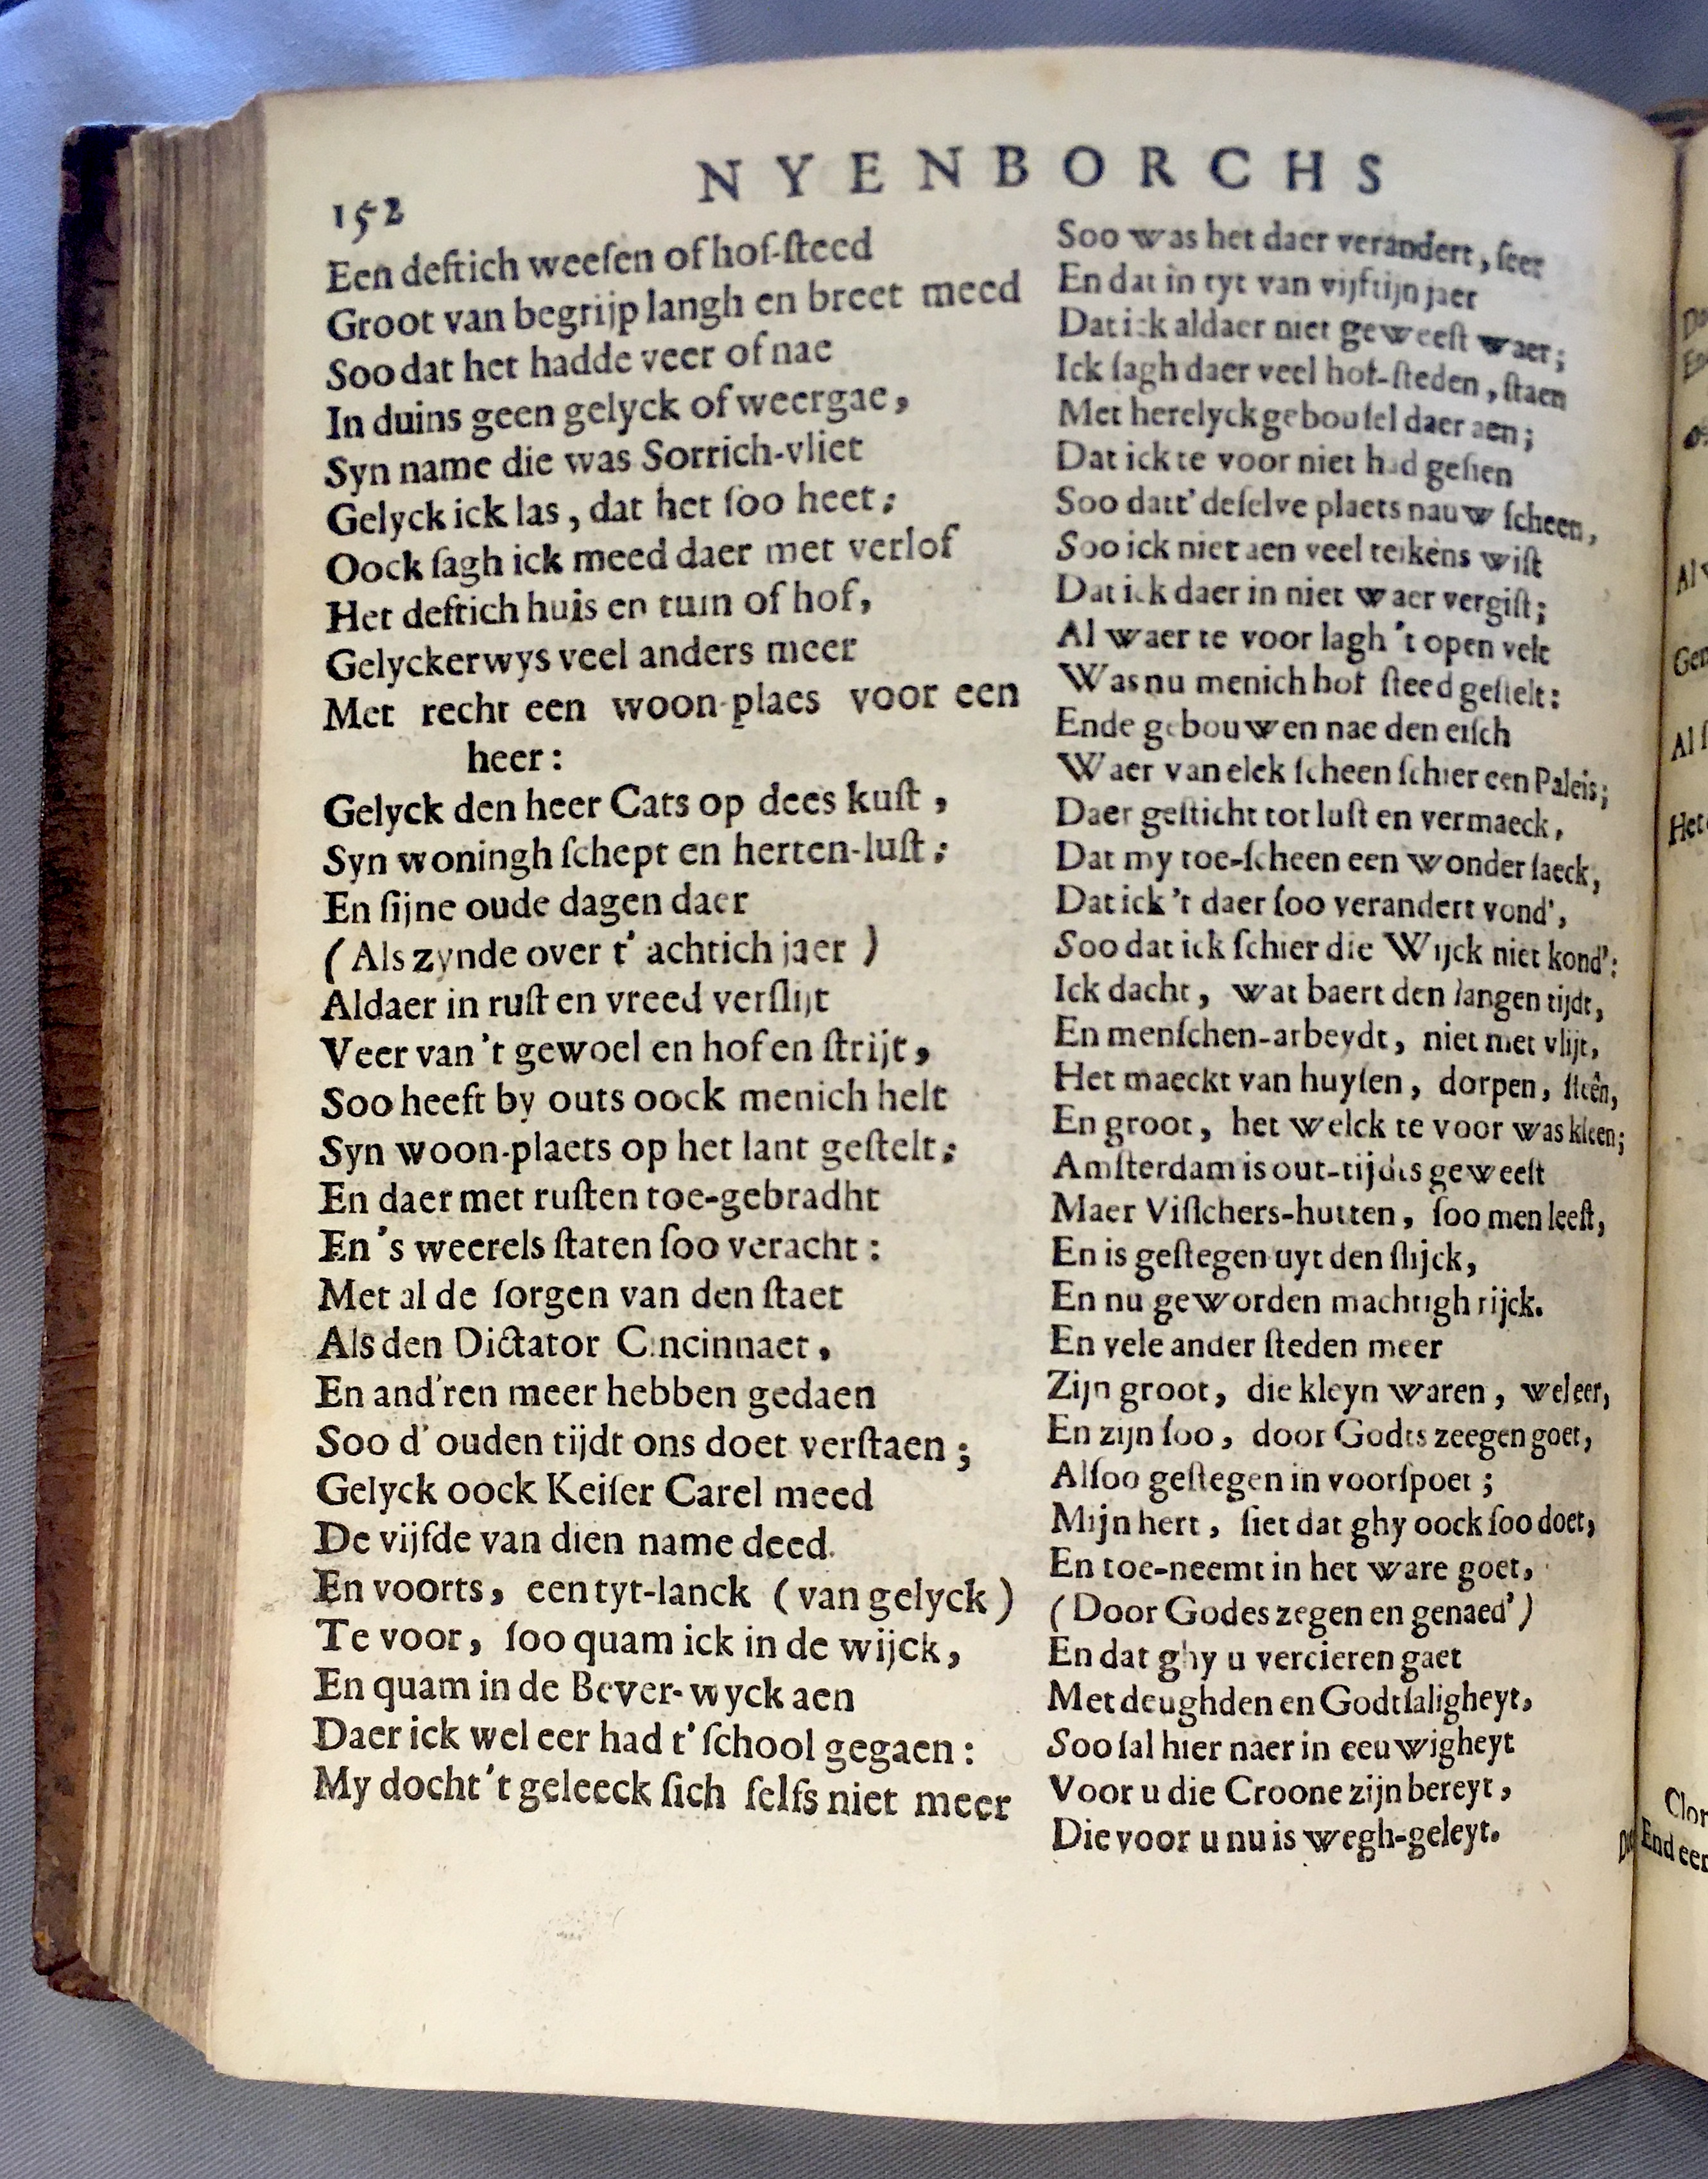 152
NYENBORCHS
Een deftich weeſen of hof-ſteed
Groot van begrijp langh en breet meed
Soo dat het hadde veer of nae
In duins geen gelyck of weergae,
Syn name die was Sorrich-vliet
Gelyck ick las, dat het ſoo heet;
Oock ſagh ick meed daer met verlof
Het deftich huis en tuin of hof,
Gelyckerwys veel anders meer
Met recht een woon-plaes voor een
heer:
Gelyck den heer Cats op dees kuſt,
Syn woningh ſchept en herten-luſt;
En ſijne oude dagen daer
(Als zynde over t' achtich jaer)
Aldaer in ruſt en vreed verſlijt
Veer van 't gewoel en hof en ſtrijt,
Soo heeft by outs oock menich helt
Syn woon-plaets op het lant geſtelt;
En daer met ruſten toe-gebradht
En 's weerels ſtaten ſoo veracht:
Met al de ſorgen van den ſtaet
Als den Dictator Cincinnaet,
En and'ren meer hebben gedaen
Soo d' ouden tijdt ons doet verſtaen;
Gelyck oock Keiſer Carel meed
De vijfde van dien name deed.
En voorts, een tyt-lanck (van gelyck)
Te voor, ſoo quam ick in de wijck,
En quam in de Bever-wyck aen
Daer ick wel eer had t' ſchool gegaen:
My docht 't geleeck ſich ſelfs niet meer
Soo was het daer verandert, ſeer
En dat in tyt van vijftijn jaer
Dat ick aldaer niet geweeſt waer;
Ick ſagh daer veel hof-ſteden, ſtaen
Met herelyck gebouſel daer aen;
Dat ick te voor niet had geſien
Soo datt' deſelve plaets nauw ſcheen,
Soo ick niet aen veel teikens wiſt
Dat ick daer in niet waer vergiſt;
Al waer te voor lagh 't open velt
Was nu menich hof ſteed geſtelt:
Ende gebouwen nae den eiſch
Waer van elck ſcheen ſchier een Paleis;
Daer geſticht tot luſt en vermaeck,
Dat my toe-ſcheen een wonder ſaeck,
Dat ick 't daer ſoo verandert vond',
Soo dat ick ſchier die Wijck niet kond':
Ick dacht, wat baert den langen tijdt,
En menſchen-arbeydt, niet met vlijt,
Het maeckt van huyſen, dorpen, ſteên,
En groot, het welck te voor was kleen;
Amſterdam is out-tijdts geweeſt
Maer Viſſchers-hutten, ſoo men leeſt,
En is geſtegen uyt den ſlijck,
En nu geworden machtigh rijck.
En vele ander ſteden meer
Zijn groot, die kleyn waren, weleer,
En zijn ſoo, door Godts zeegen goet,
Alſoo geſtegen in voorſpoet;
Mijn hert, ſiet dat ghy oock ſoo doet,
En toe-neemt in het ware goet,
(Door Godes zegen en genaed')
En dat ghy u vercieren gaet
Met deughden en Godtſaligheyt,
Soo ſal hier naer in eeuwigheyt
Voor u die Croone zijn bereyt,
Die voor u nu is wegh-geleyt.